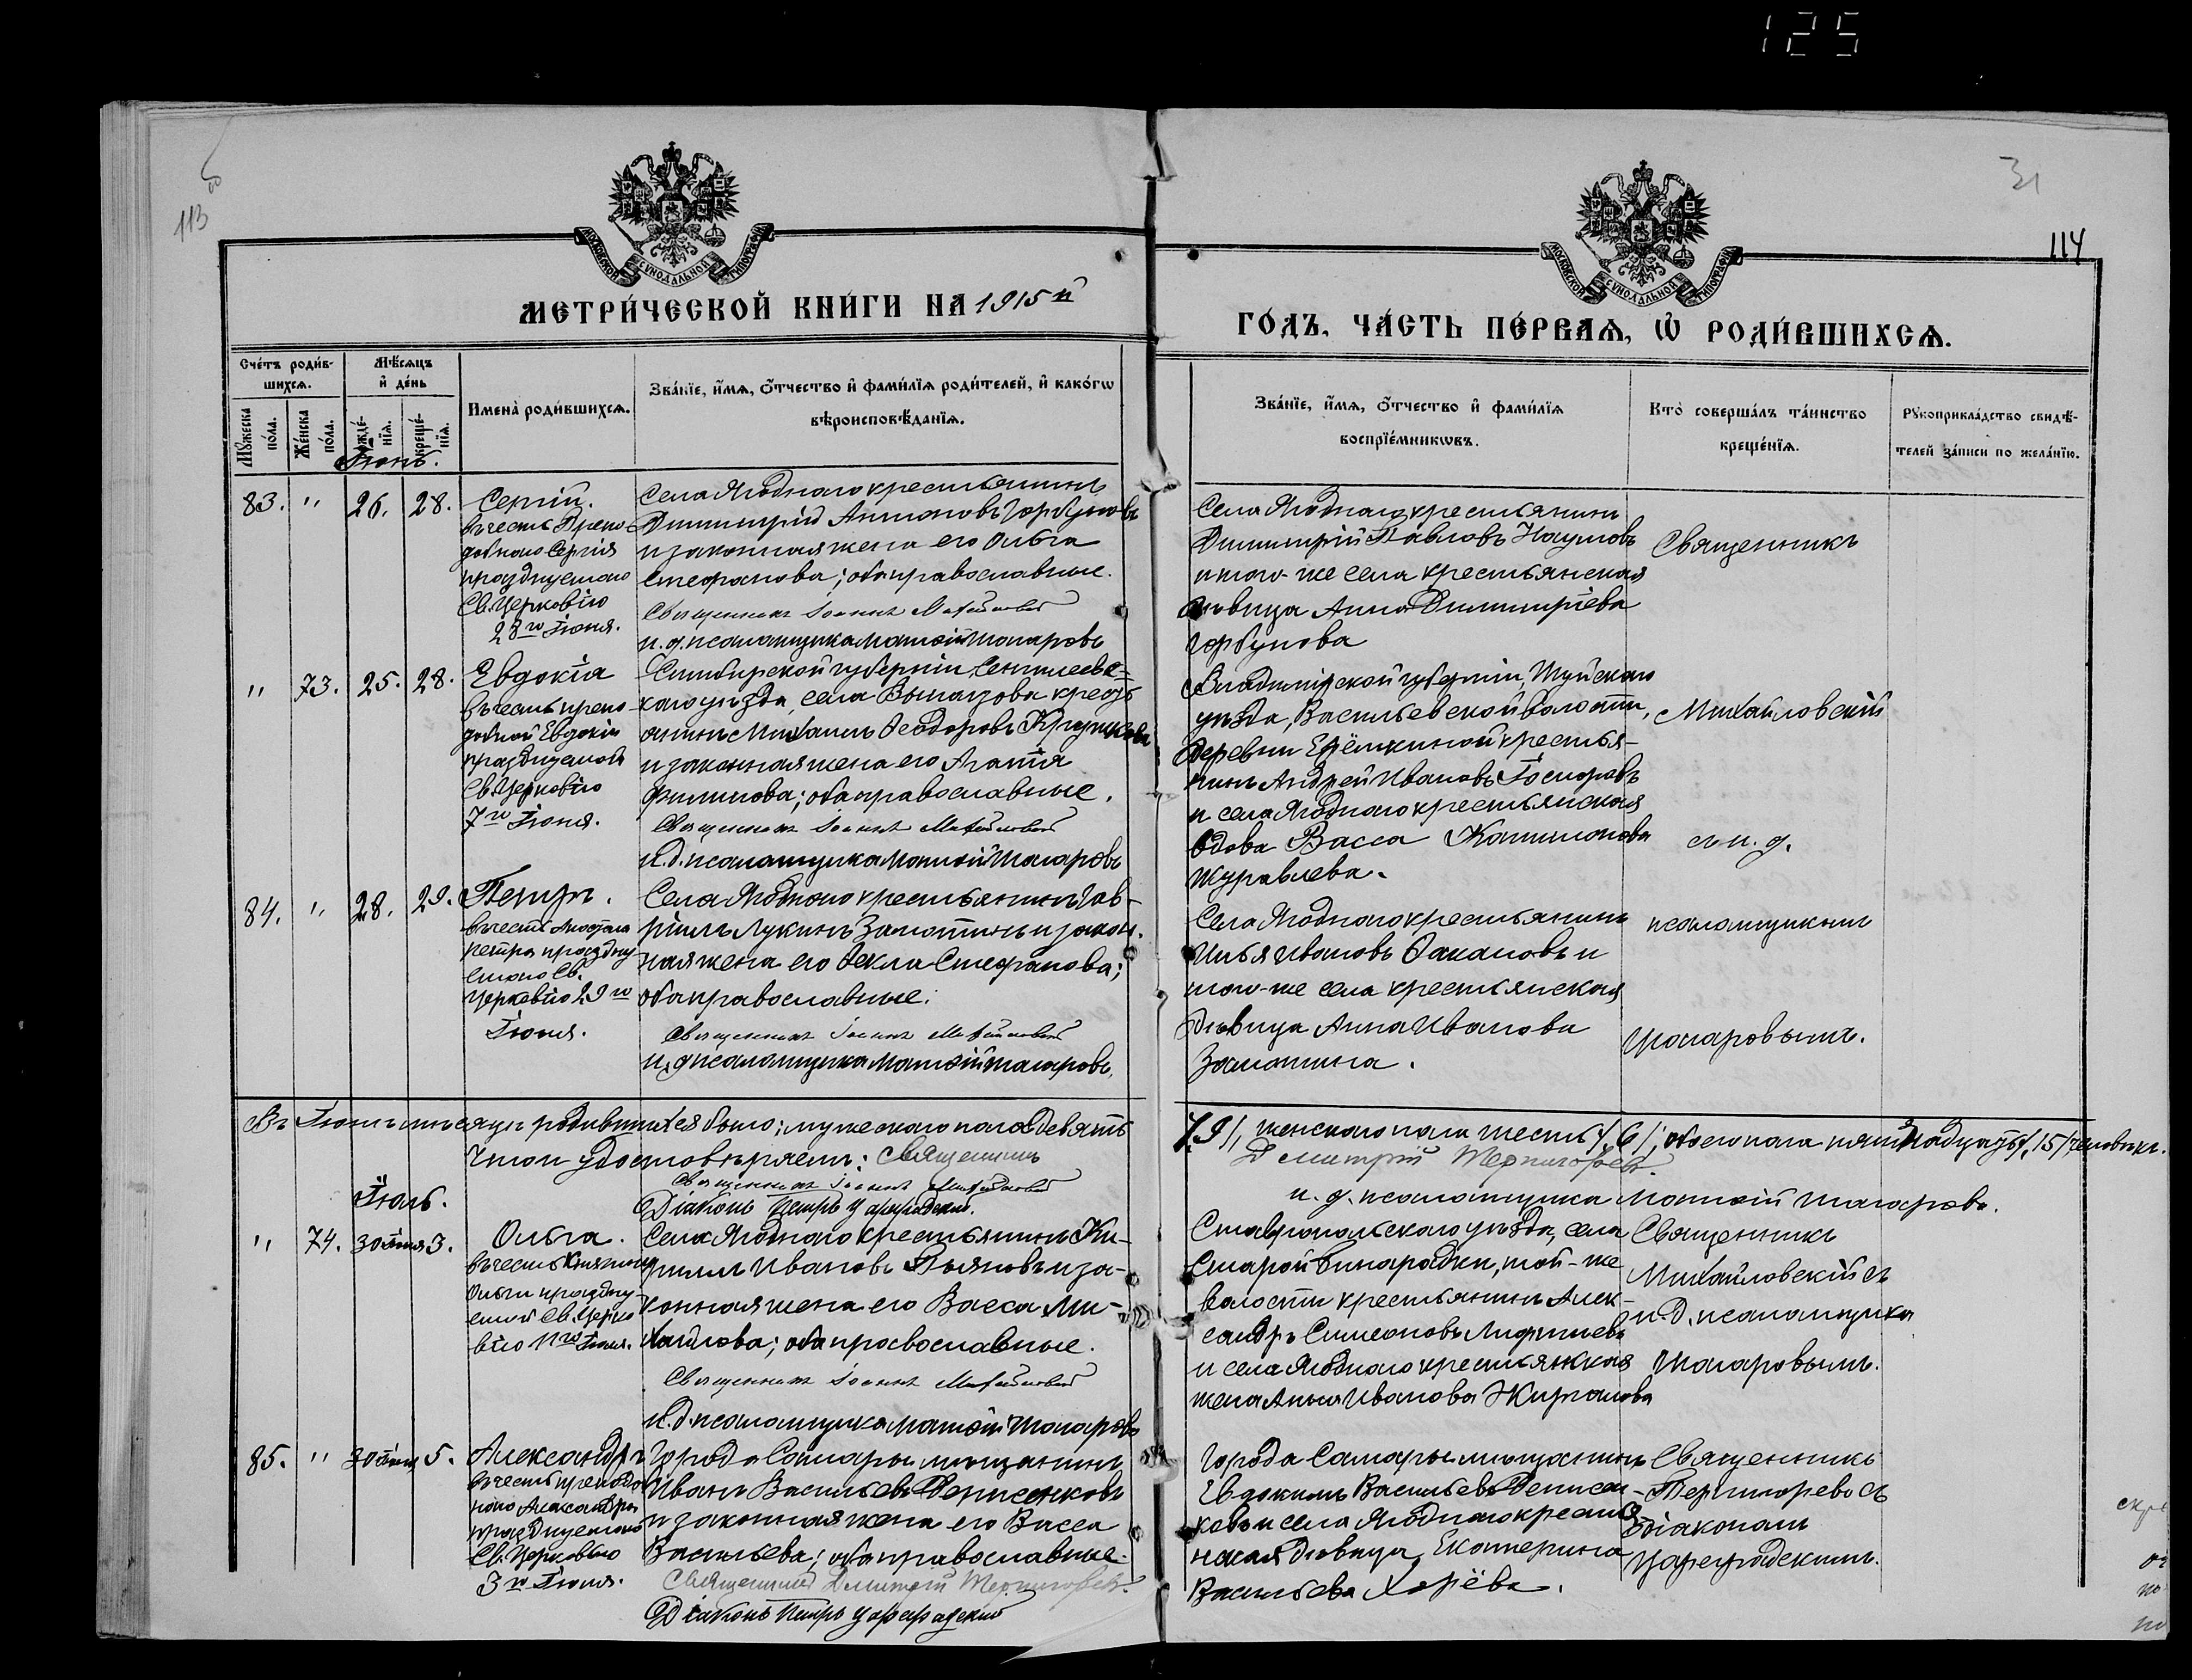 125
113
31
114
МОСКОВСКОЙ СУНОДАЛЬНОЙ ТИПОГРАФІИ
МОСКОВСКОЙ СУНОДАЛЬНОЙ ТИПОГРАФІИ
МЕТРИ́ЧЕСКОЙ КНИ́ГИ НА 1915й
ГО́ДЪ, ЧА́СТЬ ПЕ́РВАѦ, Ѡ҆ РОДИ́ВШИХСѦ.
Сче́тъ роди́в-
шихсѧ.
Мѣ́сѧцъ
и҆ де́нь
Мꙋ́жеска
по́ла.
Же́нска
по́ла.
рожде́-
нїѧ.
креще́-
нїѧ.
Имена̀ роди́вшихсѧ.
Зва́нїе, и҆́мѧ, ѻ҆́тчество и҆ фами́лїѧ роди́телей, и҆ како́гѡ
вѣроисповѣ́данїѧ.
Зва́нїе, и҆́мѧ, ѻ҆́тчество и҆ фами́лїѧ
воспрїе́мникѡвъ.
Кто̀ соверша́лъ та́инство
креще́нїѧ.
Рꙋкоприкла́дство свидѣ́-
телей за́писи по жела́нїю.
Іюнь.
83. " 26. 28.
Сергій.
въ честь Препо-
добнаго Сергія
празднуемаго
Св. Церковію
28го Іюня.
Села Ягоднаго крестьянинъ
Димитрій Антоновъ Горбуновъ
и законная жена его Ольга
Стефанова; оба православные.
Священникъ Іоаннъ Михайловскій
и. д. псаломщика Матѳій Шагаровъ
Села Ягоднаго крестьянинъ
Димитрій Павловъ Наумовъ
и того-же села крестьянская
дѣвица Анна Димитріева
Горбунова
Священникъ
" 73. 25. 28.
Евдокія
въ честь препо-
добной Евдокіи
празднуемой
Св. Церковію
7го Іюня.
Симбирской губерніи, Сенгилеевс-
каго уѣзда, села
Михаилъ Ѳеодоровъ
и законная жена его Агаѳія
Филипова; оба православные.
Священникъ Іоаннъ Михайловскій
И. д. псаломщика Матѳій Шагаровъ
Владимірской губерніи, Шуйскаго
уѣзда, Васильевской волости,
деревни крестья-
нинъ Андрей Ивановъ
и села Ягоднаго крестьянская
вдова Васса
Журавлева.
Михайловскій
съ и. д.
84. " 28. 29.
Петръ.
въ честь Апостола
Петра праздну-
емаго Св.
Церковію 29го
Іюня.
Села Ягоднаго крестьянинъ Гав-
ріилъ Лукинъ Замотинъ и закон-
ная жена его Ѳекла Стефанова;
оба православные.
Священникъ Іоаннъ Михайловскій
и. д. псаломщика Матѳій Шагаровъ.
Села Ягоднаго крестьянинъ
Илья Ивановъ и
того-же села крестьянская
дѣвица Анна Иванова
Замотина.
псаломщикомъ
Шагаровымъ.
Въ Іюнѣ мѣсяцѣ родившихся было: мужескаго пола девять
/9/, женскаго пола шесть /6/; обоего пола пятнадцать /15/ человѣкъ.
Въ томъ удостовѣряемъ: Священникъ
Димитрій Терпигоревъ
Священникъ Іоаннъ Михайловскій
Діаконъ Петръ Цареградскій.
и. д. псаломщика Матѳій Шагаровъ.
Іюль.
" 74. 30 Іюня 3.
Ольга.
въ честь Княгини
Ольги праздну-
емой Св. Церко-
вію 11го Іюля.
Села Ягоднаго крестьянинъ Ки-
риллъ Ивановъ и за-
конная жена его Васса Ми-
хайлова; оба православные.
Священникъ Іоаннъ Михайловскій
И. д. псаломщика Матѳій Шагаровъ
Ставропольскаго уѣзда, села
Старой Бинарадки, той-же
волости крестьянинъ Алек-
сандръ Симеоновъ
и села Ягоднаго крестьянская
жена Анна Иванова
Священникъ
Михайловскій съ
и. д. псаломщика
Шагаровымъ.
85. " 30 Іюня 5.
Александръ
въ честь преподоб-
наго Александра
празднуемаго
Св. Церковію
3го Іюля.
Города Самары мѣщанинъ
Иванъ Васильевъ Денисенковъ
и законная жена его Васса
Васильева; оба православные.
Священникъ Димитрій Терпигоревъ.
Діаконъ Петръ Цареградскій
Города Самары мѣщанинъ
Евдокимъ Васильевъ Денисен-
ковъ и села Ягоднаго крестья-
нская дѣвица Екатерина
Васильева Хорёва.
Священникъ
Терпигоревъ съ
діакономъ
Цареградскимъ.